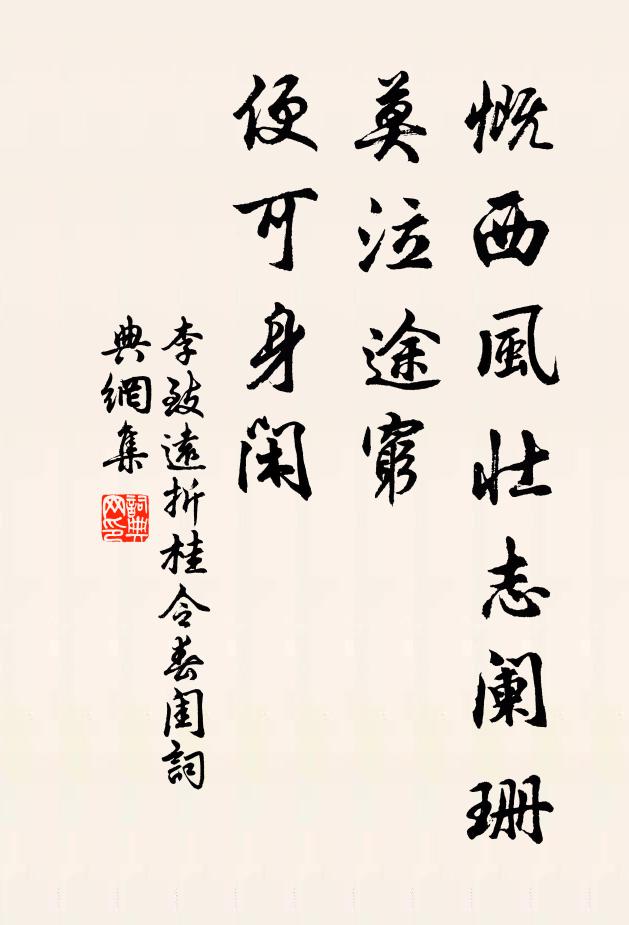 慨西風壯志闌珊
莫泣途窮
便可身閑
李致遠折桂令春閨詞
典網集
詞典
网印